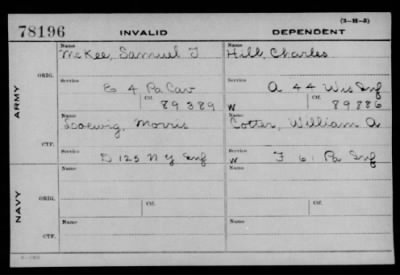 (3-M-3)
78196 INVALID DEPENDENT
Name Name
McKee, Samuel T Hill, Charles
ORIG.
Service Service
E 4 Pa Cav A 44 Wis Inf
Ctf. Ctf.
89389 W 89886
ARMY
Name Name
Loewig, Morris Cotter, William A
CTF.
Service Service
D 125 N Y Inf W F 61 Pa Inf
Name Name
ORIG.
Ctf. Ctf.
NAVY
Name Name
CTF.